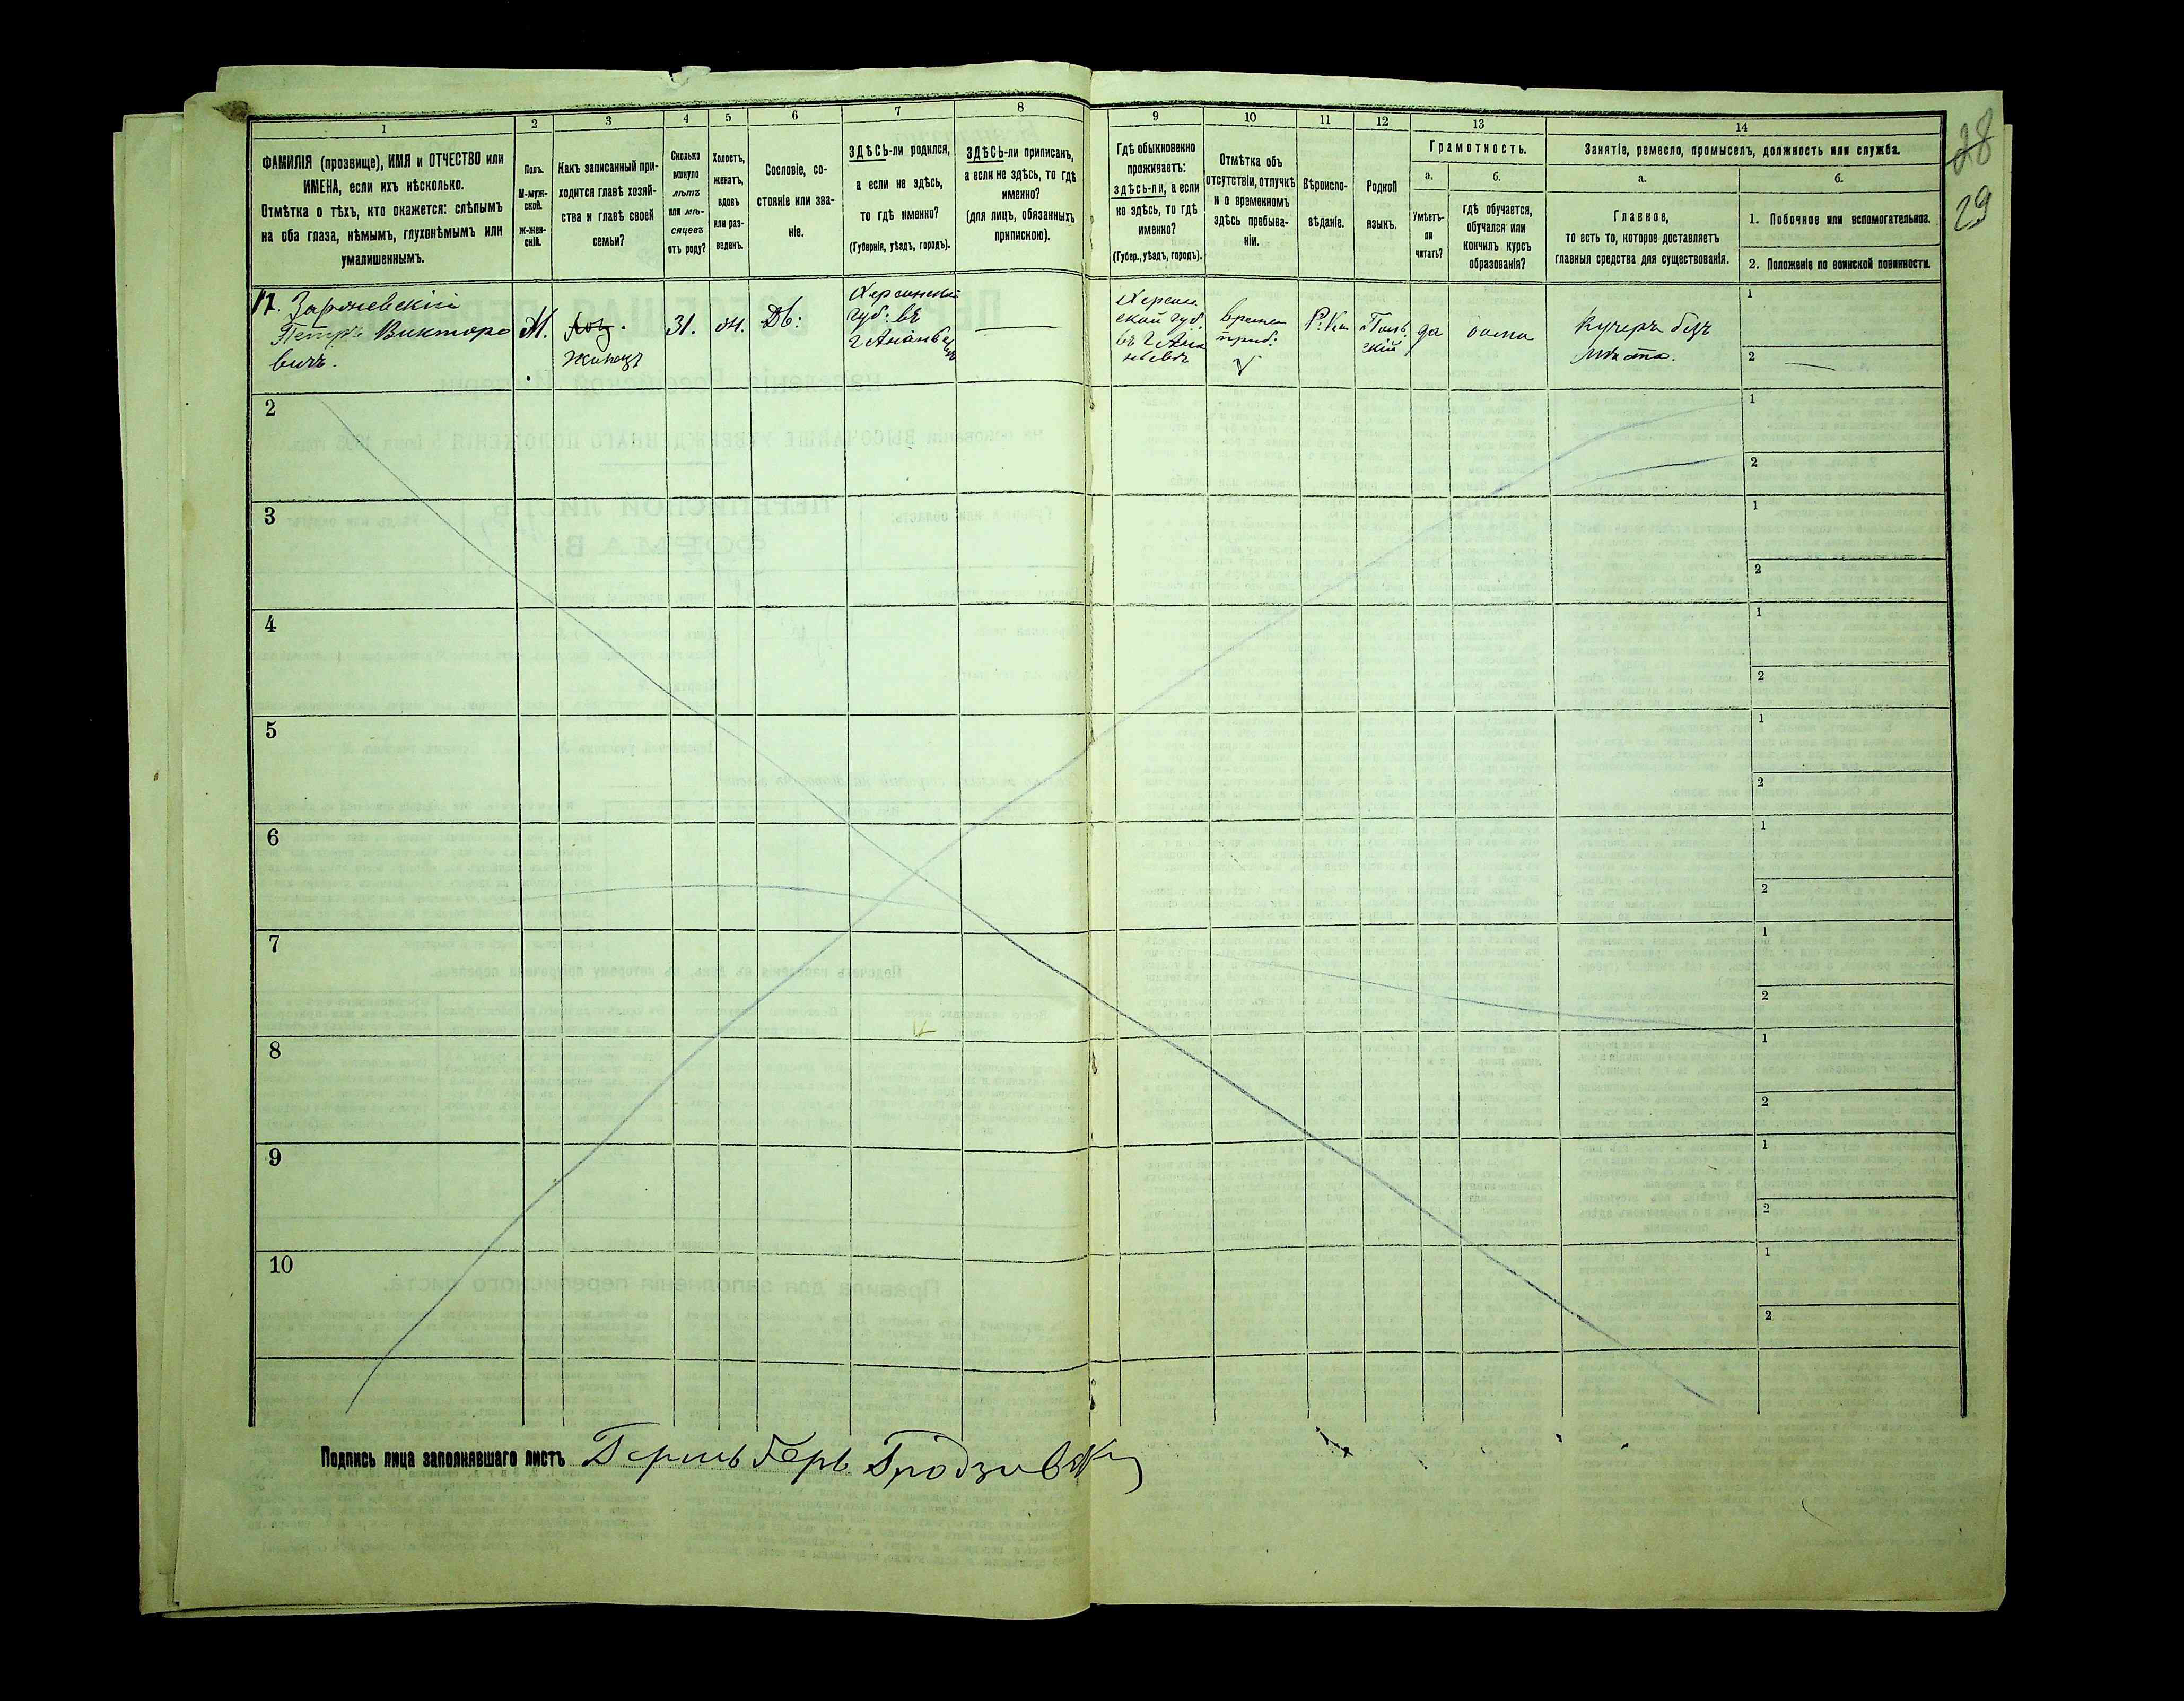 28
29
1
2
3
4
5
6
7
8
9
10
11
12
13
14
ФАМИЛІЯ (прозвище), ИМЯ и ОТЧЕСТВО или
ИМЕНА, если ихъ нѣсколько.
Отмѣтка о тѣхъ, кто окажется: слѣпымъ
на оба глаза, нѣмымъ, глухонѣмымъ или
умалишеннымъ.
Полъ.
М-муж-
ской.
Ж-жен-
скій.
Какъ записанный при-
ходится главѣ хозяй-
ства и главѣ своей
семьи?
Сколько
минуло
лѣтъ
или мѣ-
сяцевъ
отъ роду?
Холостъ,
женатъ,
вдовъ
или раз-
веденъ.
Сословіе, со-
стояніе или зва-
ніе.
ЗДѢСЬ-ли родился,
а если не здѣсь,
то гдѣ именно?
(Губернія, уѣздъ, городъ).
ЗДѢСЬ-ли приписанъ,
а если не здѣсь, то гдѣ
именно?
(для лицъ, обязанныхъ
припискою).
Гдѣ обыкновенно
проживаетъ:
здѣсь-ли, а если
не здѣсь, то гдѣ
именно?
(Губер., уѣздъ, городъ).
Отмѣтка объ
отсутствіи, отлучкѣ
и о временномъ
здѣсь пребыва-
ніи.
Вѣроиспо-
вѣданіе.
Родной
языкъ.
Грамотность.
а.
Умѣетъ-
ли
читать?
б.
гдѣ обучается,
обучался или
кончилъ курсъ
образованія?
Занятіе, ремесло, промыселъ, должность или служба.
а.
Главное,
то есть то, которое доставляетъ
главныя средства для существованія.
б.
1. Побочное или вспомогательное.
2. Положеніе по воинской повинности.
Петръ Викторо
вичъ.
М.
Жилецъ
31.
Дв:
Херсонской
губ: въ
г Ананьев
Херсон
ской губ.
въ г Ана
ньевѣ
времен
приб:
Р: Ка
Поль
скій
да
дома
Кучеръ безъ
мѣста.
1
2
2
1
2
3
1
2
4
1
2
5
1
2
6
1
2
7
1
2
8
1
2
9
1
2
10
1
2
Подпись лица заполнявшаго листъ